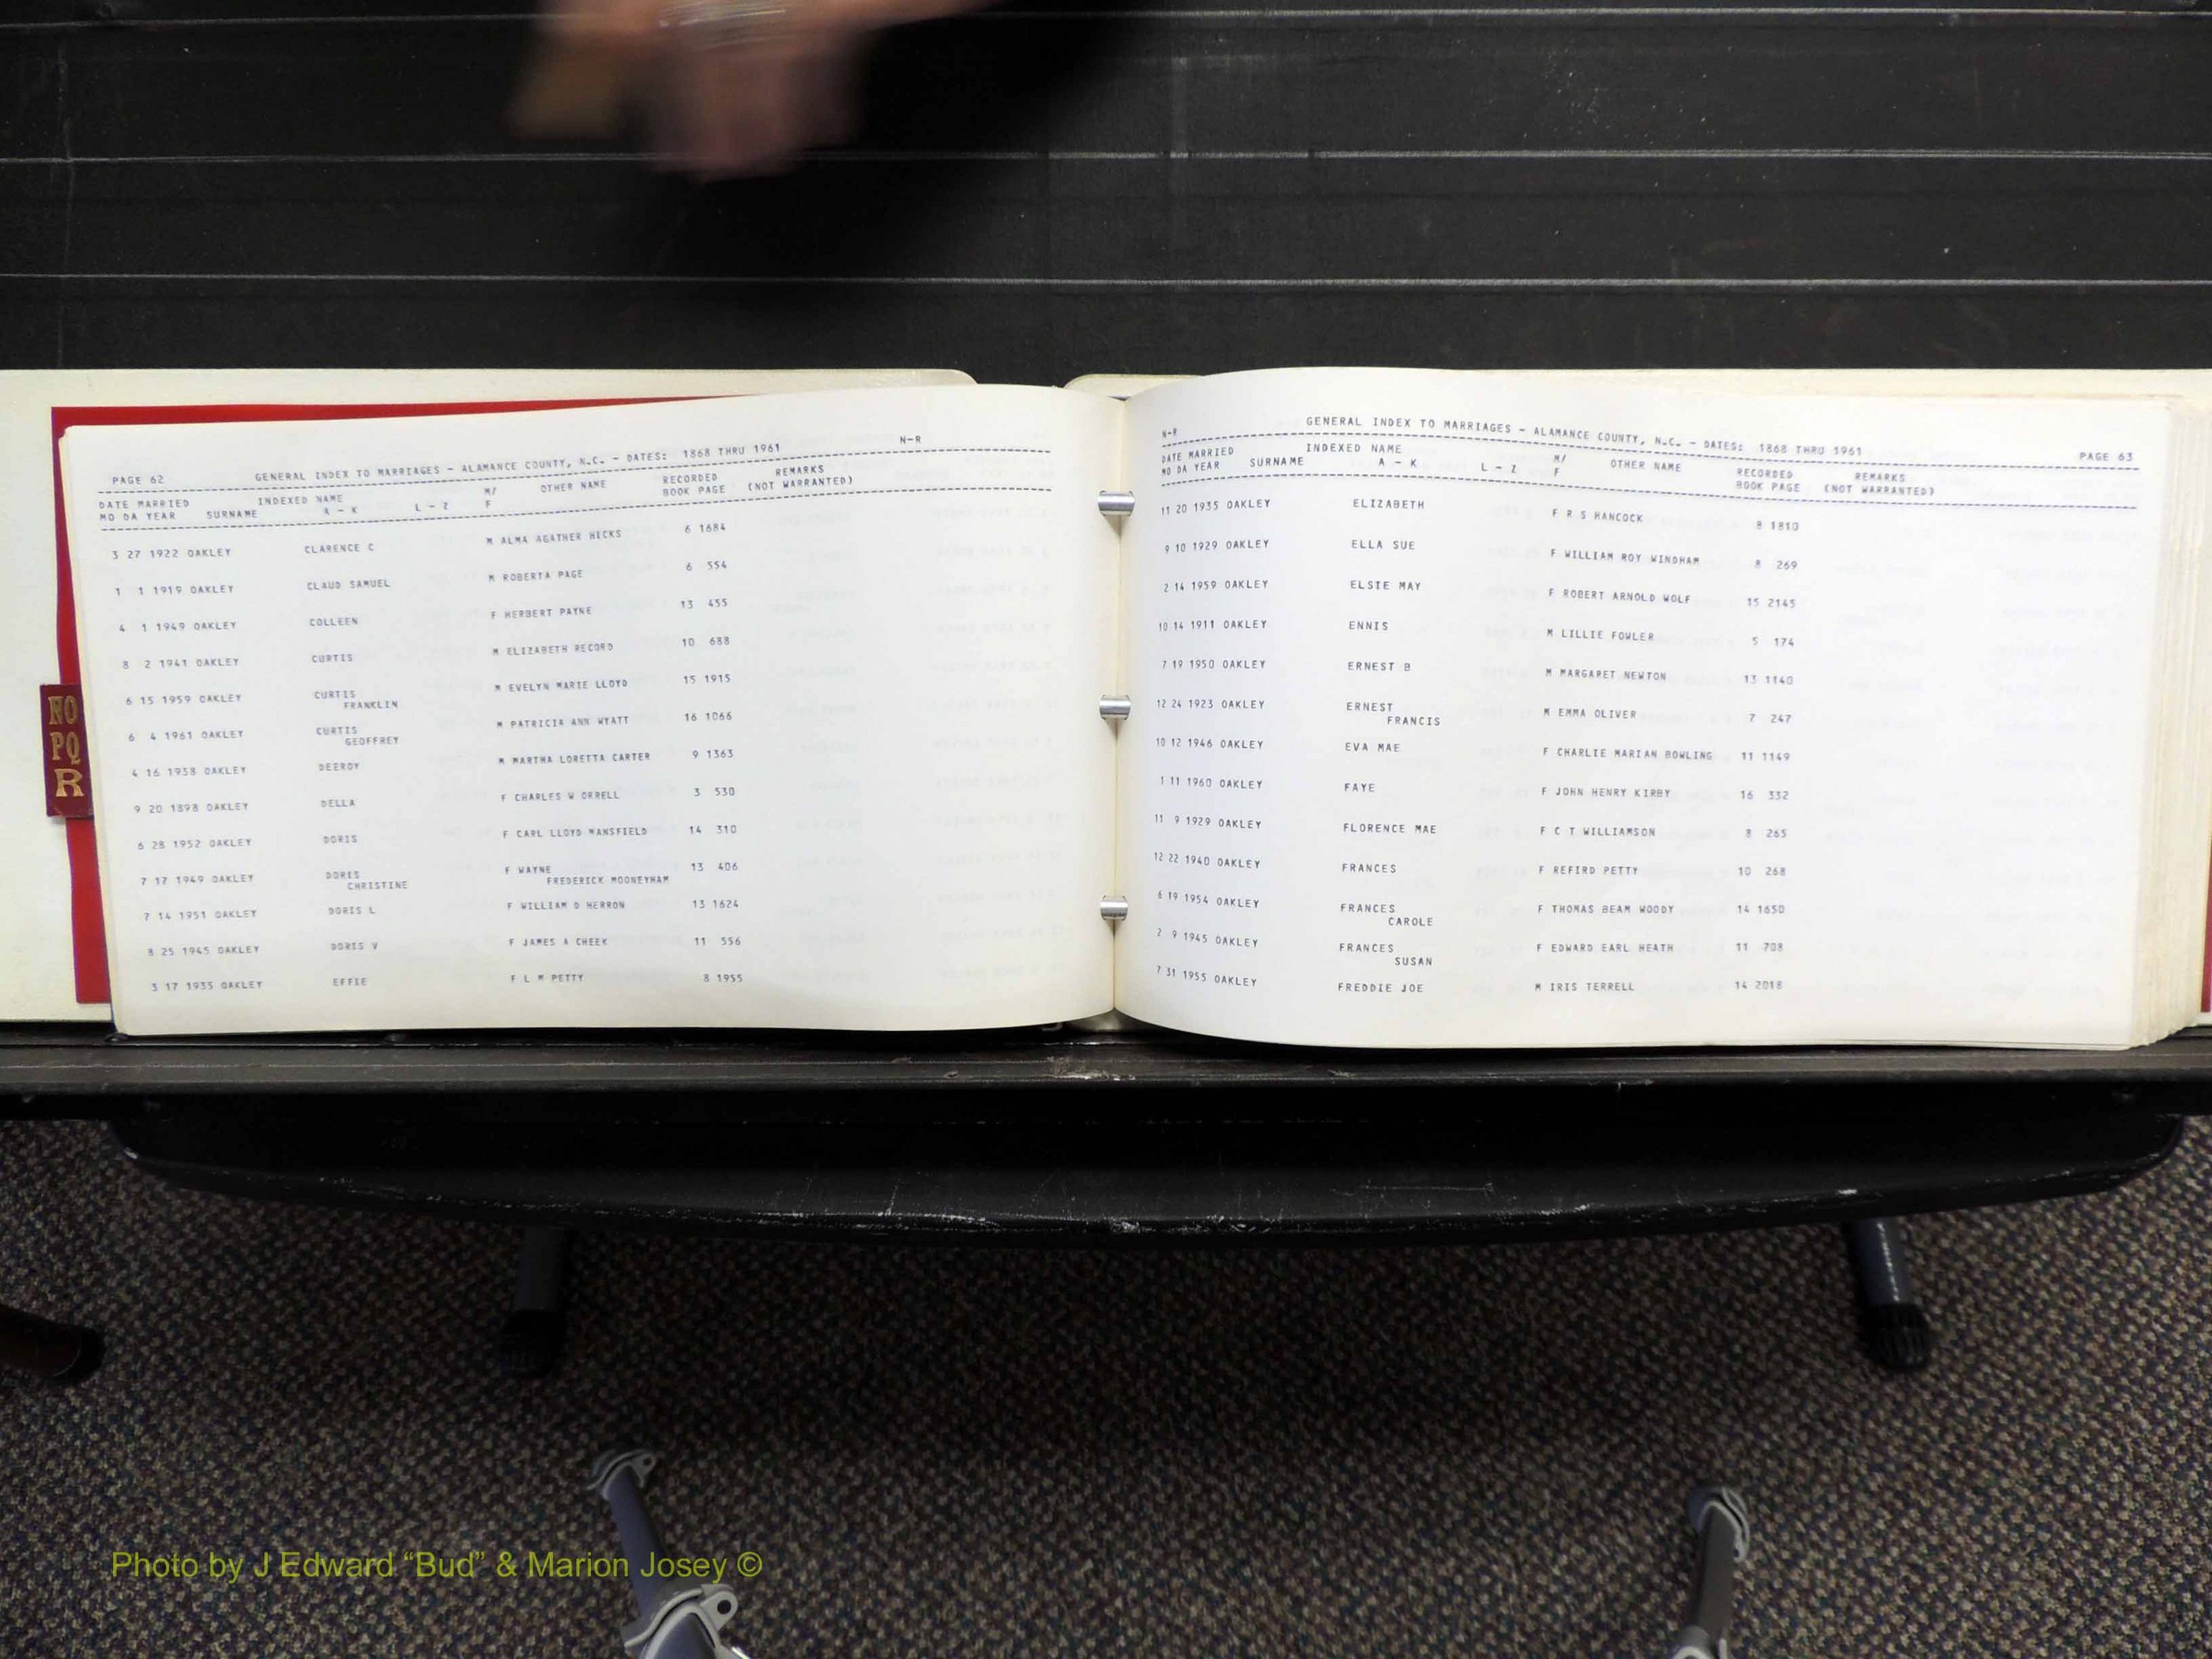 PAGE 62 GENERAL INDEX TO MARRIAGES - ALAMANCE COUNTY, N.C. - DATES: 1868 THRU 1961 N-R
DATE MARRIED INDEXED NAME M/ OTHER NAME RECORDED REMARKS
MO DA YEAR SURNAME A - K L - Z F BOOK PAGE (NOT WARRANTED)
3 27 1922 OAKLEY CLARENCE C M ALMA AGATHER HICKS 6 1684
1 1 1919 OAKLEY CLAUD SAMUEL M ROBERTA PAGE 6 554
4 1 1949 OAKLEY COLLEEN F HERBERT PAYNE 13 455
8 2 1941 OAKLEY CURTIS M ELIZABETH RECORD 10 688
6 15 1959 OAKLEY CURTIS M EVELYN MARIE LLOYD 15 1915
FRANKLIN
6 4 1961 OAKLEY CURTIS M PATRICIA ANN WYATT 16 1066
GEOFFREY
4 16 1938 OAKLEY DEEROY M MARTHA LORETTA CARTER 9 1363
9 20 1898 OAKLEY DELLA F CHARLES W ORRELL 3 530
6 28 1952 OAKLEY DORIS F CARL LLOYD MANSFIELD 14 310
7 17 1949 OAKLEY DORIS F WAYNE 13 406
CHRISTINE FREDERICK MOONEYHAM
7 14 1951 OAKLEY DORIS L F WILLIAM D HERRON 13 1624
8 25 1945 OAKLEY DORIS V F JAMES A CHEEK 11 556
3 17 1935 OAKLEY EFFIE F L M PETTY 8 1955
NO
PQ
R
N-R GENERAL INDEX TO MARRIAGES - ALAMANCE COUNTY, N.C. - DATES: 1868 THRU 1961 PAGE 63
DATE MARRIED INDEXED NAME M/ OTHER NAME RECORDED REMARKS
MO DA YEAR SURNAME A - K L - Z F BOOK PAGE (NOT WARRANTED)
11 20 1935 OAKLEY ELIZABETH F R S HANCOCK 8 1810
9 10 1929 OAKLEY ELLA SUE F WILLIAM ROY WINDHAM 8 269
2 14 1959 OAKLEY ELSIE MAY F ROBERT ARNOLD WOLF 15 2145
10 14 1911 OAKLEY ENNIS M LILLIE FOWLER 5 174
7 19 1950 OAKLEY ERNEST B M MARGARET NEWTON 13 1140
12 24 1923 OAKLEY ERNEST M EMMA OLIVER 7 247
FRANCIS
10 12 1946 OAKLEY EVA MAE F CHARLIE MARIAN BOWLING 11 1149
1 11 1960 OAKLEY FAYE F JOHN HENRY KIRBY 16 332
11 9 1929 OAKLEY FLORENCE MAE F C T WILLIAMSON 8 265
12 22 1940 OAKLEY FRANCES F REFIRD PETTY 10 268
6 19 1954 OAKLEY FRANCES F THOMAS BEAM WOODY 14 1650
CAROLE
2 9 1945 OAKLEY FRANCES F EDWARD EARL HEATH 11 708
SUSAN
7 31 1955 OAKLEY FREDDIE JOE M IRIS TERRELL 14 2018
Photo by J Edward “Bud” & Marion Josey ©